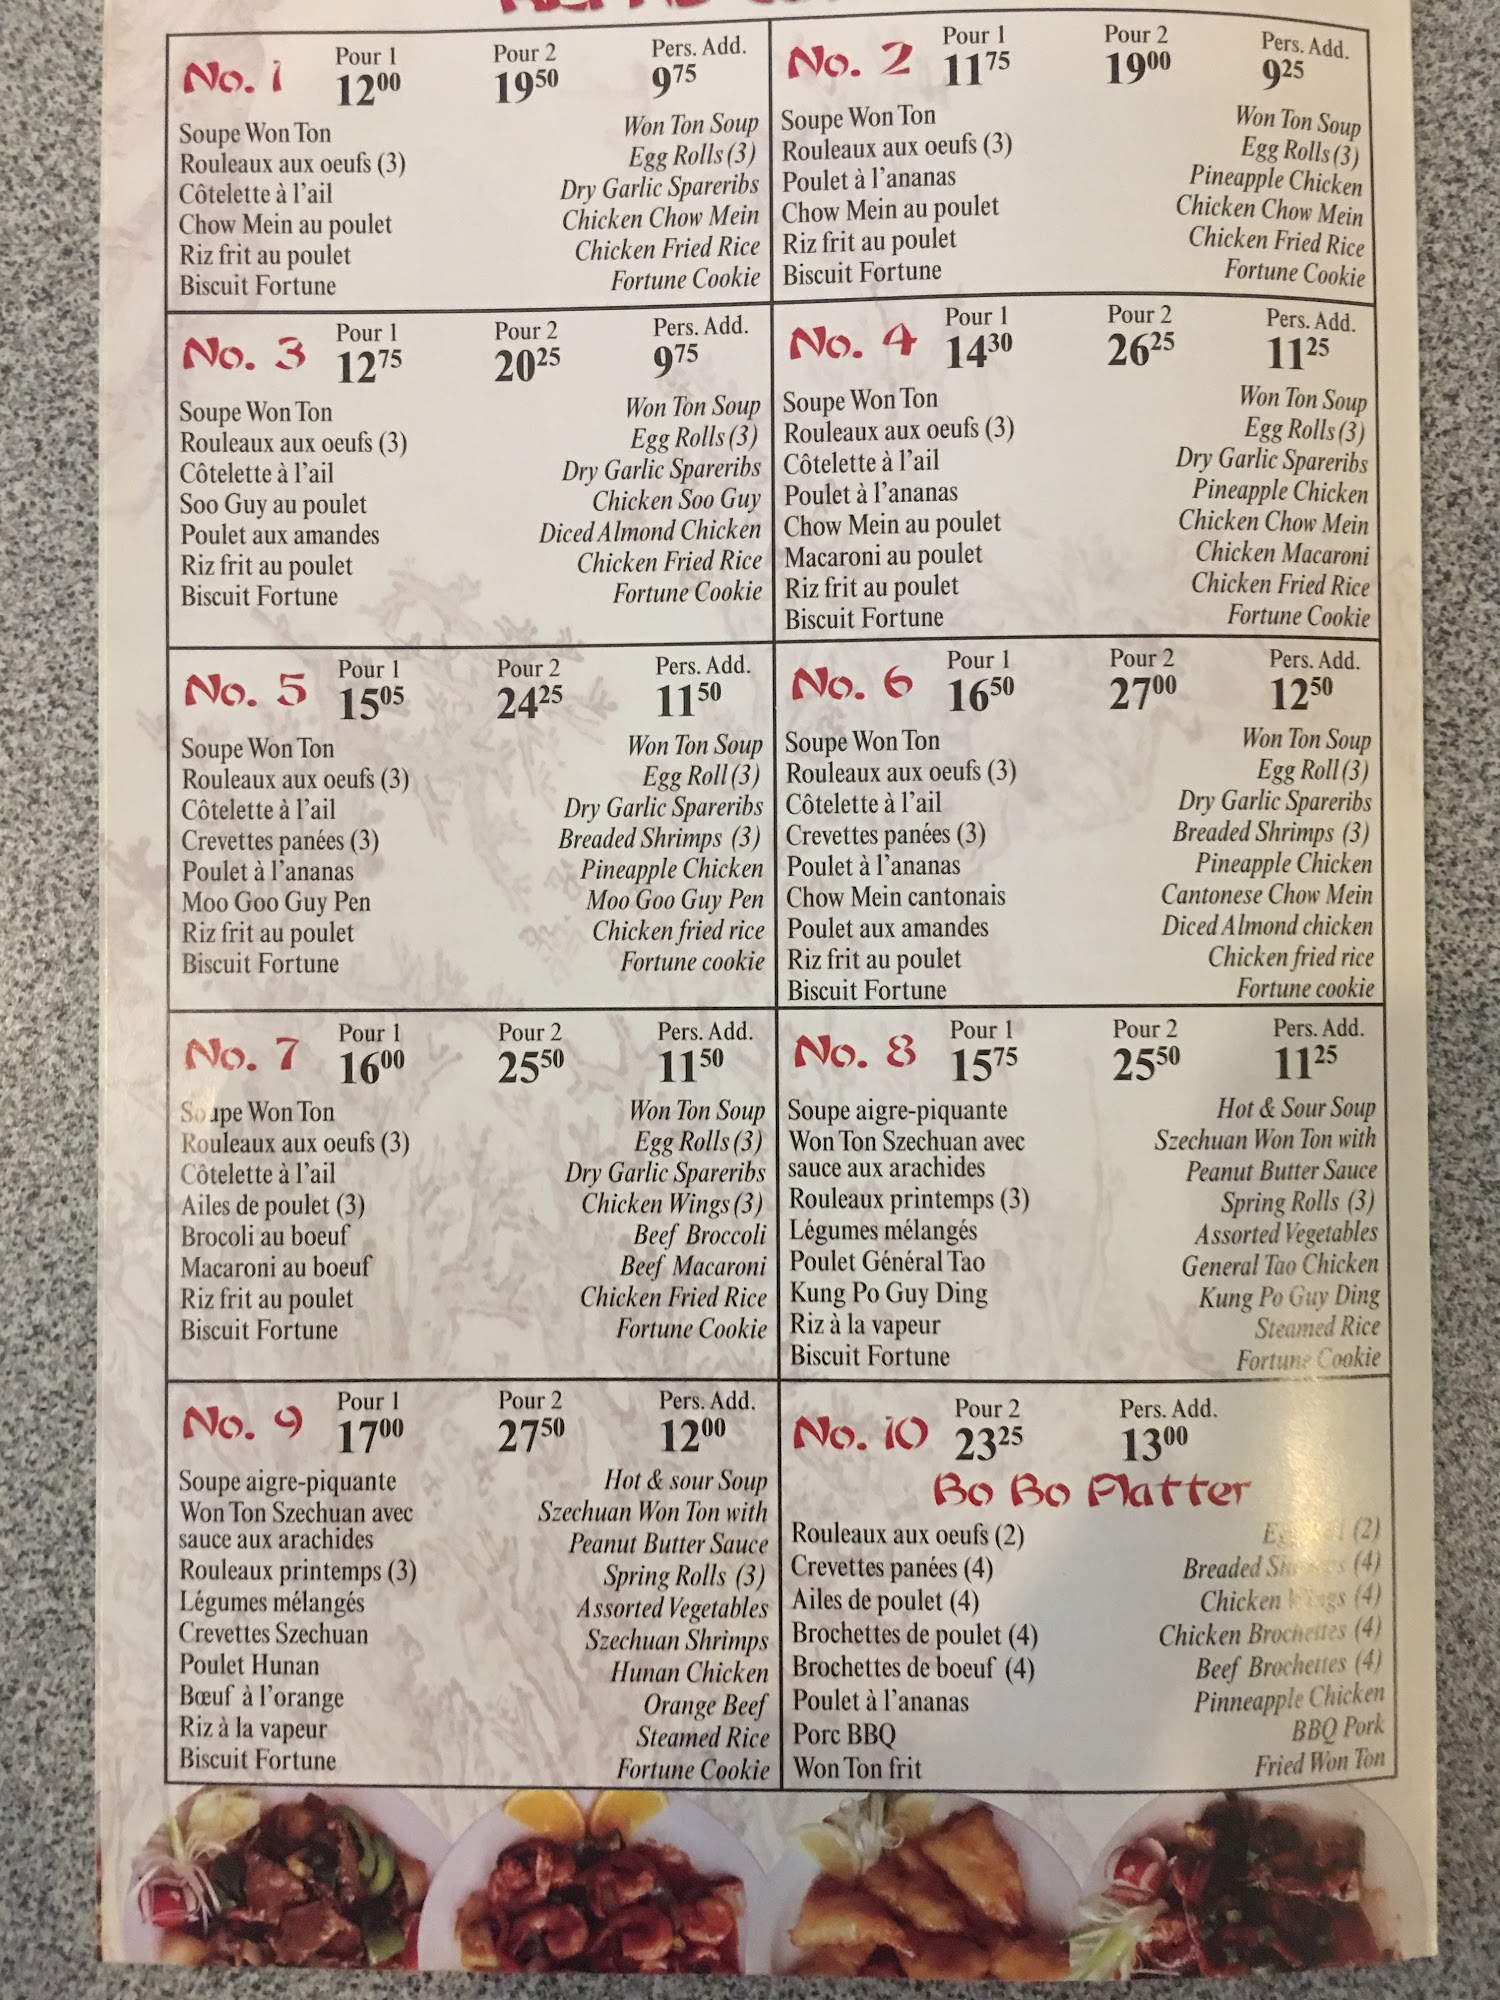 No. 1 Pour 1 Pour 2 Pers. Add.
12 00 19 50 9 75
Soupe Won Ton Won Ton Soup
Rouleaux aux oeufs (3) Egg Rolls (3)
Côtelette à l'ail Dry Garlic Spareribs
Chow Mein au poulet Chicken Chow Mein
Riz frit au poulet Chicken Fried Rice
Biscuit Fortune Fortune Cookie
No. 2 Pour 1 Pour 2 Pers. Add.
11 75 19 00 9 25
Soupe Won Ton Won Ton Soup
Rouleaux aux oeufs (3) Egg Rolls (3)
Poulet à l'ananas Pineapple Chicken
Chow Mein au poulet Chicken Chow Mein
Riz frit au poulet Chicken Fried Rice
Biscuit Fortune Fortune Cookie
No. 3 Pour 1 Pour 2 Pers. Add.
12 75 20 25 9 75
Soupe Won Ton Won Ton Soup
Rouleaux aux oeufs (3) Egg Rolls (3)
Côtelette à l'ail Dry Garlic Spareribs
Soo Guy au poulet Chicken Soo Guy
Poulet aux amandes Diced Almond Chicken
Riz frit au poulet Chicken Fried Rice
Biscuit Fortune Fortune Cookie
No. 4 Pour 1 Pour 2 Pers. Add.
14 30 26 25 11 25
Soupe Won Ton Won Ton Soup
Rouleaux aux oeufs (3) Egg Rolls (3)
Côtelette à l'ail Dry Garlic Spareribs
Poulet à l'ananas Pineapple Chicken
Chow Mein au poulet Chicken Chow Mein
Macaroni au poulet Chicken Macaroni
Riz frit au poulet Chicken Fried Rice
Biscuit Fortune Fortune Cookie
No. 5 Pour 1 Pour 2 Pers. Add.
15 05 24 25 11 50
Soupe Won Ton Won Ton Soup
Rouleaux aux oeufs (3) Egg Roll (3)
Côtelette à l'ail Dry Garlic Spareribs
Crevettes panées (3) Breaded Shrimps (3)
Poulet à l'ananas Pineapple Chicken
Moo Goo Guy Pen Moo Goo Guy Pen
Riz frit au poulet Chicken fried rice
Biscuit Fortune Fortune cookie
No. 6 Pour 1 Pour 2 Pers. Add.
16 50 27 00 12 50
Soupe Won Ton Won Ton Soup
Rouleaux aux oeufs (3) Egg Roll (3)
Côtelette à l'ail Dry Garlic Spareribs
Crevettes panées (3) Breaded Shrimps (3)
Poulet à l'ananas Pineapple Chicken
Chow Mein cantonais Cantonese Chow Mein
Poulet aux amandes Diced Almond chicken
Riz frit au poulet Chicken fried rice
Biscuit Fortune Fortune cookie
No. 7 Pour 1 Pour 2 Pers. Add.
16 00 25 50 11 50
Soupe Won Ton Won Ton Soup
Rouleaux aux oeufs (3) Egg Rolls (3)
Côtelette à l'ail Dry Garlic Spareribs
Ailes de poulet (3) Chicken Wings (3)
Brocoli au boeuf Beef Broccoli
Macaroni au boeuf Beef Macaroni
Riz frit au poulet Chicken Fried Rice
Biscuit Fortune Fortune Cookie
No. 8 Pour 1 Pour 2 Pers. Add.
15 75 25 50 11 25
Soupe aigre-piquante Hot & Sour Soup
Won Ton Szechuan avec Szechuan Won Ton with
sauce aux arachides Peanut Butter Sauce
Rouleaux printemps (3) Spring Rolls (3)
Légumes mélangés Assorted Vegetables
Poulet Général Tao General Tao Chicken
Kung Po Guy Ding Kung Po Guy Ding
Riz à la vapeur Steamed Rice
Biscuit Fortune Fortune Cookie
No. 9 Pour 1 Pour 2 Pers. Add.
17 00 27 50 12 00
Soupe aigre-piquante Hot & sour Soup
Won Ton Szechuan avec Szechuan Won Ton with
sauce aux arachides Peanut Butter Sauce
Rouleaux printemps (3) Spring Rolls (3)
Légumes mélangés Assorted Vegetables
Crevettes Szechuan Szechuan Shrimps
Poulet Hunan Hunan Chicken
Bœuf à l'orange Orange Beef
Riz à la vapeur Steamed Rice
Biscuit Fortune Fortune Cookie
No. 10 Pour 2 Pers. Add.
23 25 13 00
Bo Bo Platter
Rouleaux aux oeufs (2) (2)
Crevettes panées (4) Breaded (4)
Ailes de poulet (4) Chicken Wings (4)
Brochettes de poulet (4) Chicken Brochettes (4)
Brochettes de boeuf (4) Beef Brochettes (4)
Poulet à l'ananas Pinneapple Chicken
Porc BBQ BBQ Pork
Won Ton frit Fried Won Ton